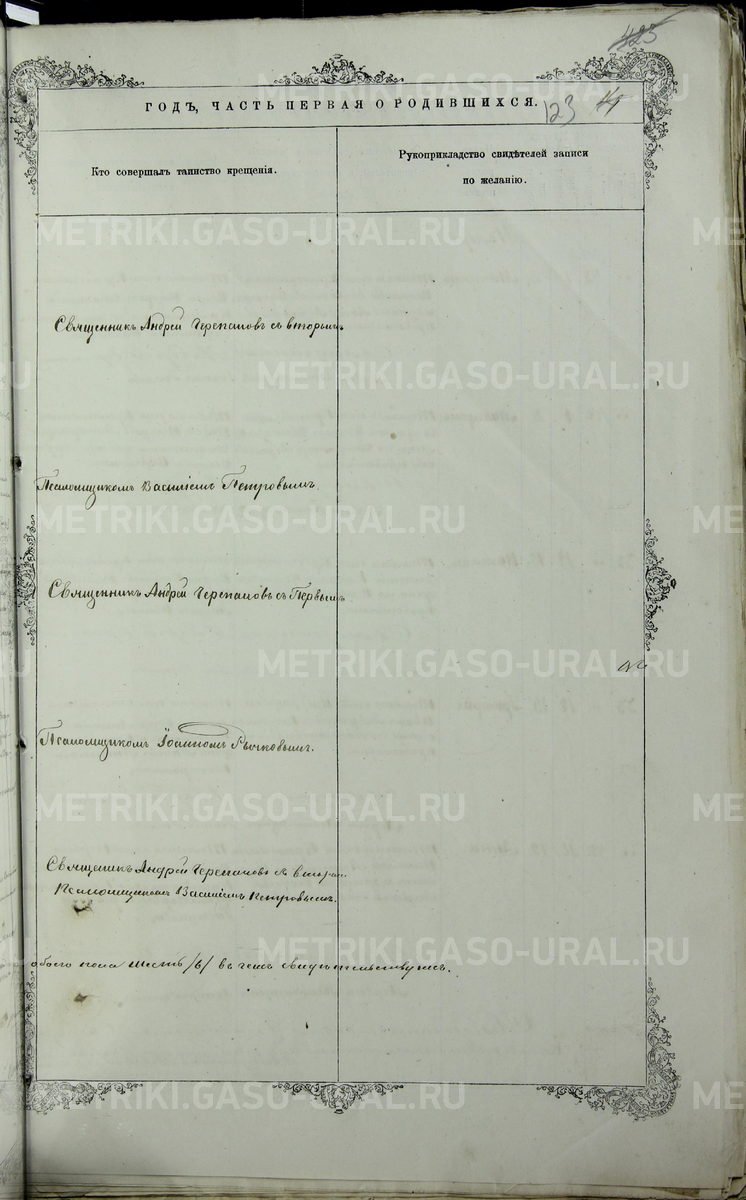 425
ГОДЪ, ЧАСТЬ ПЕРВАЯ О РОДИВШИХСЯ. 123
Кто совершалъ таинство крещенія.
Рукоприкладство свидѣтелей записи
по желанію.
METRIKI.GASO-URAL.RU
Священникъ Андрей Черепановъ съ вторымъ
Псаломщикомъ Василіемъ Петровымъ.
Священникъ Андрей Черепановъ съ Первымъ
Псаломщикомъ Іоанномъ Рычковымъ.
Священикъ Андрей Черепановъ съ вторымъ
Псаломщикомъ Василіемъ Петровымъ.
обоего пола шесть /6/ въ чемъ свидѣтельствуемъ.